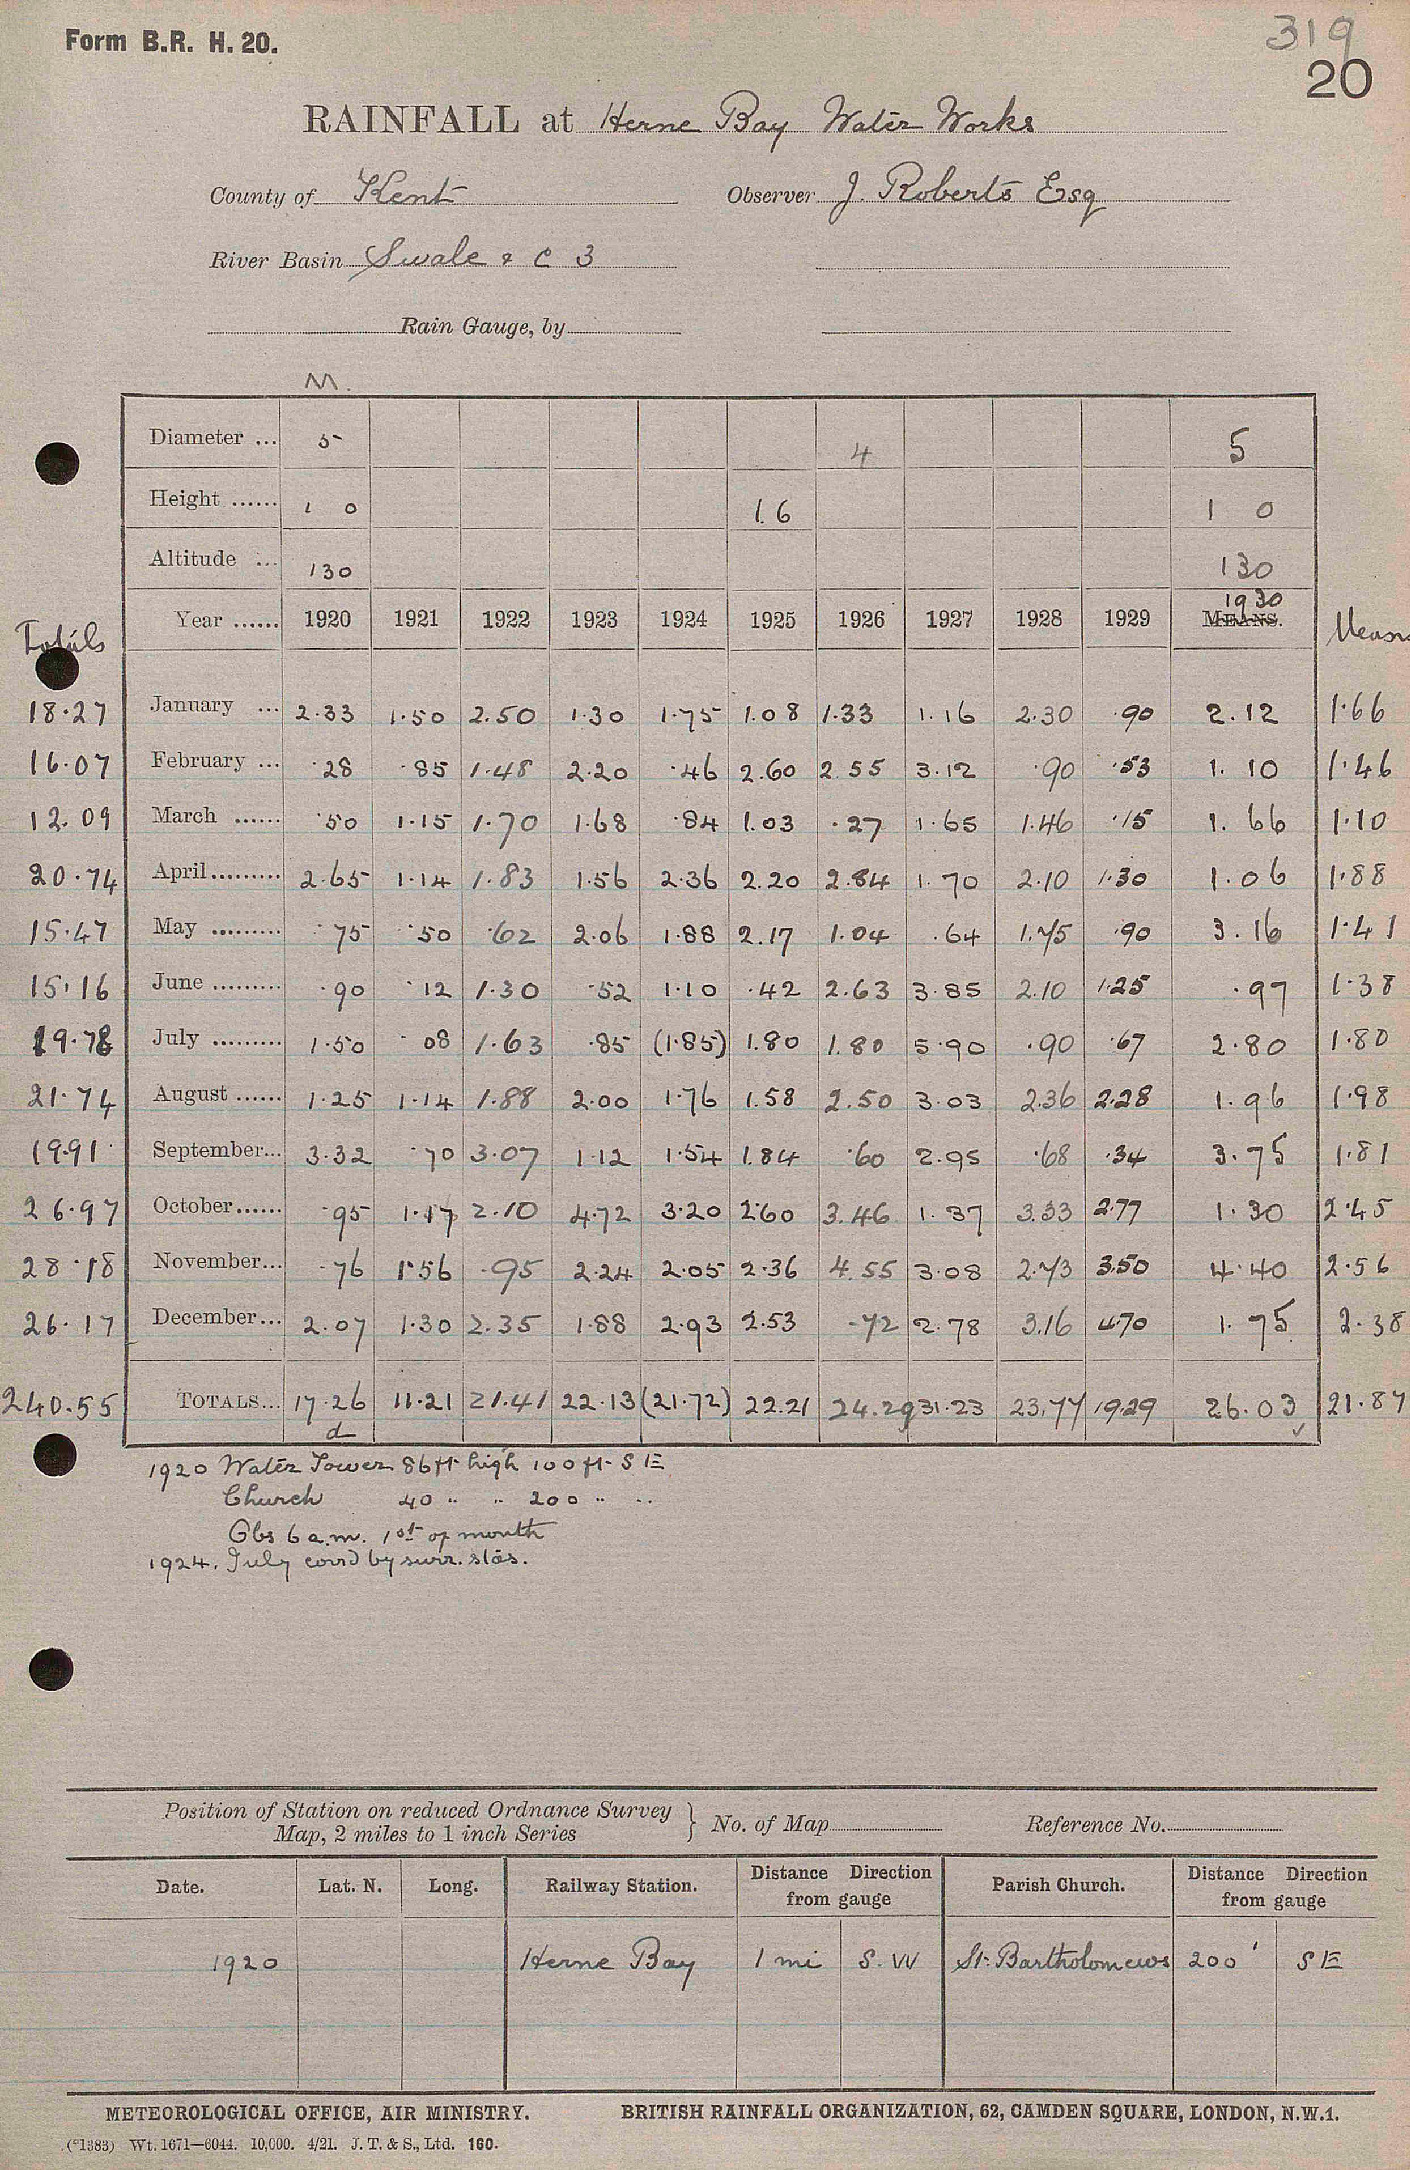 Form B.R. H. 20.
319
20
RAINFALL at Herne Bay Water Works
County of Kent Observer J. Roberts Esq
River Basin Swale & C 3
Rain Gauge, by
M.
Diameter ... 5 4 5
Height ...... 1 0 1.6 1 0
Altitude ... 130 130
Totals Year ...... 1920 1921 1922 1923 1924 1925 1926 1927 1928 1929 1930 MEANS. Means
18.27 January ... 2.33 1.50 2.50 1.30 1.75 1.08 1.33 1.16 2.30 .90 2.12 1.66
16.07 February ... .28 .85 1.48 2.20 .46 2.60 2.55 3.12 .90 .53 1.10 1.46
12.09 March ...... .50 1.15 1.70 1.68 .84 1.03 .27 1.65 1.46 .15 1.66 1.10
20.74 April......... 2.65 1.14 1.83 1.56 2.36 2.20 2.84 1.70 2.10 1.30 1.06 1.88
15.47 May ......... .75 .50 .62 2.06 1.88 2.17 1.04 .64 1.75 .90 3.16 1.41
15.16 June ......... .90 .12 1.30 .52 1.10 .42 2.63 3.85 2.10 1.25 .97 1.38
19.78 July ......... 1.50 .08 1.63 .85 (1.85) 1.80 1.80 5.90 .90 .67 2.80 1.80
21.74 August ...... 1.25 1.14 1.88 2.00 1.76 1.58 2.50 3.03 2.36 2.28 1.96 1.98
19.91 September... 3.32 .70 3.07 1.12 1.54 1.84 .60 2.95 .68 .34 3.75 1.81
26.97 October...... .95 1.17 2.10 4.72 3.20 2.60 3.46 1.37 3.33 2.77 1.30 2.45
28.18 November... .76 1.56 .95 2.24 2.05 2.36 4.55 3.08 2.73 3.50 4.40 2.56
26.17 December... 2.07 1.30 2.35 1.88 2.93 2.53 .72 2.78 3.16 4.70 1.75 2.38
240.55 TOTALS... 17.26 11.21 21.41 22.13 (21.72) 22.21 24.29 31.23 23.77 19.29 26.03 21.87
d
1920 Water Tower 86 ft high 100 ft S E
Church 40 " " 200 " "
Obs 6 a.m. 1st of month
1924. July corrd by surr. stas.
Position of Station on reduced Ordnance Survey
Map, 2 miles to 1 inch Series } No. of Map Reference No.
Date. Lat. N. Long. Railway Station. Distance Direction from gauge Parish Church. Distance Direction from gauge
1920 Herne Bay 1 mi S.W St. Bartholomews 200' S E
METEOROLOGICAL OFFICE, AIR MINISTRY. BRITISH RAINFALL ORGANIZATION, 62, CAMDEN SQUARE, LONDON, N.W.1.
(*1383) Wt. 1671—6044. 10,000. 4/21. J. T. & S., Ltd. 160.